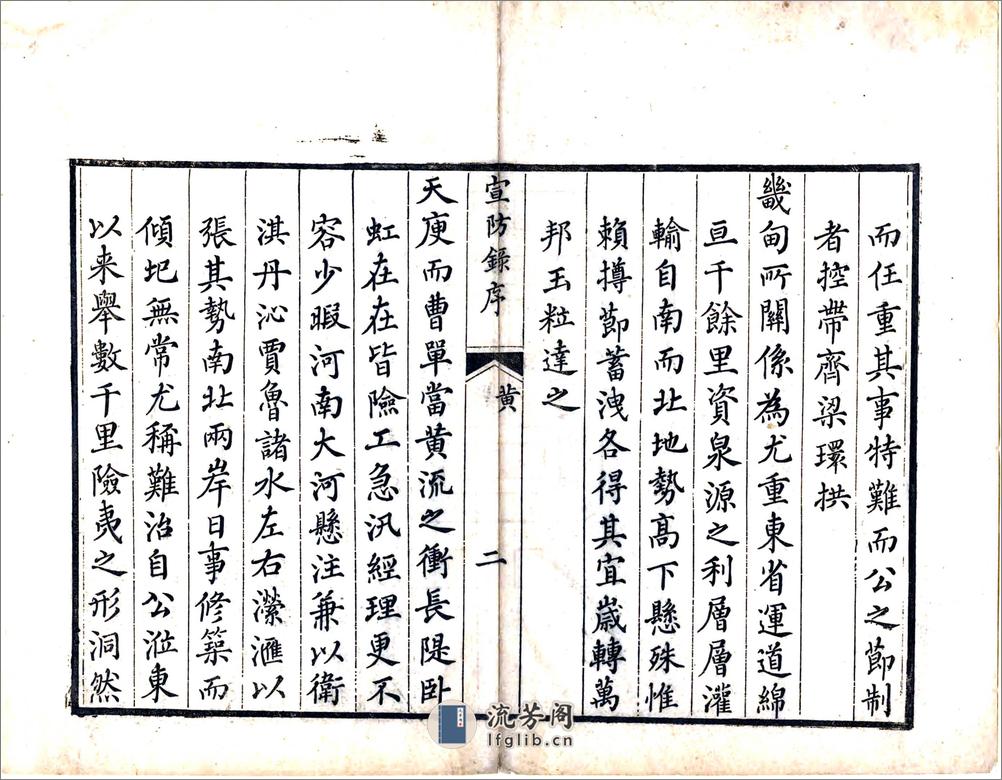 而任重其事特難而公之節制
者控帶齊梁環拱
畿甸所關係為尤重東省運道綿
亘千餘里資泉源之利層層灌
輸自南而北地勢高下懸殊惟
賴撙節蓄洩各得其宜嵗轉萬
邦玉粒達之
宣防錄序
黄
二
天庾而曹單當黄流之衝長隄卧
虹在在皆險工急汛經理更不
容少暇河南大河懸注兼以衛
淇丹沁賈魯諸水左右瀠滙以
張其勢南北兩岸日事修築而
傾圮無常尤稱難治自公涖東
以来舉數千里險夷之形洞然
流芳阁
lfglib.cn